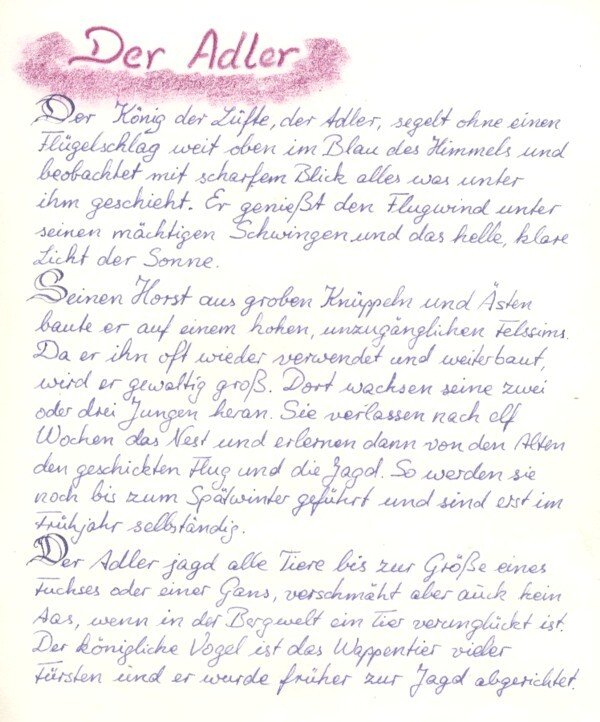 Der Adler
Der König der Lüfte, der Adler, segelt ohne einen
Flügelschlag weit oben im Blau des Himmels und
beobachtet mit scharfem Blick alles was unter
ihm geschieht. Er genießt den Flugwind unter
seinen mächtigen Schwingen und das helle, klare
Licht der Sonne.
Seinen Horst aus groben Knüppeln und Ästen
baute er auf einem hohen, unzugänglichen Felssims.
Da er ihn oft wieder verwendet und weiterbaut,
wird er gewaltig groß. Dort wachsen seine zwei
oder drei Jungen heran. Sie verlassen nach elf
Wochen das Nest und erlernen dann von den Alten
den geschickten Flug und die Jagd. So werden sie
noch bis zum Spätwinter geführt und sind erst im
Frühjahr selbständig.
Der Adler jagd alle Tiere bis zur Größe eines
Fuchses oder einer Gans, verschmäht aber auck kein
Aas, wenn in der Bergwelt ein Tier verunglückt ist.
Der königliche Vogel ist das Wappentier vieler
Fürsten und er wurde früher zur Jagd abgerichtet.